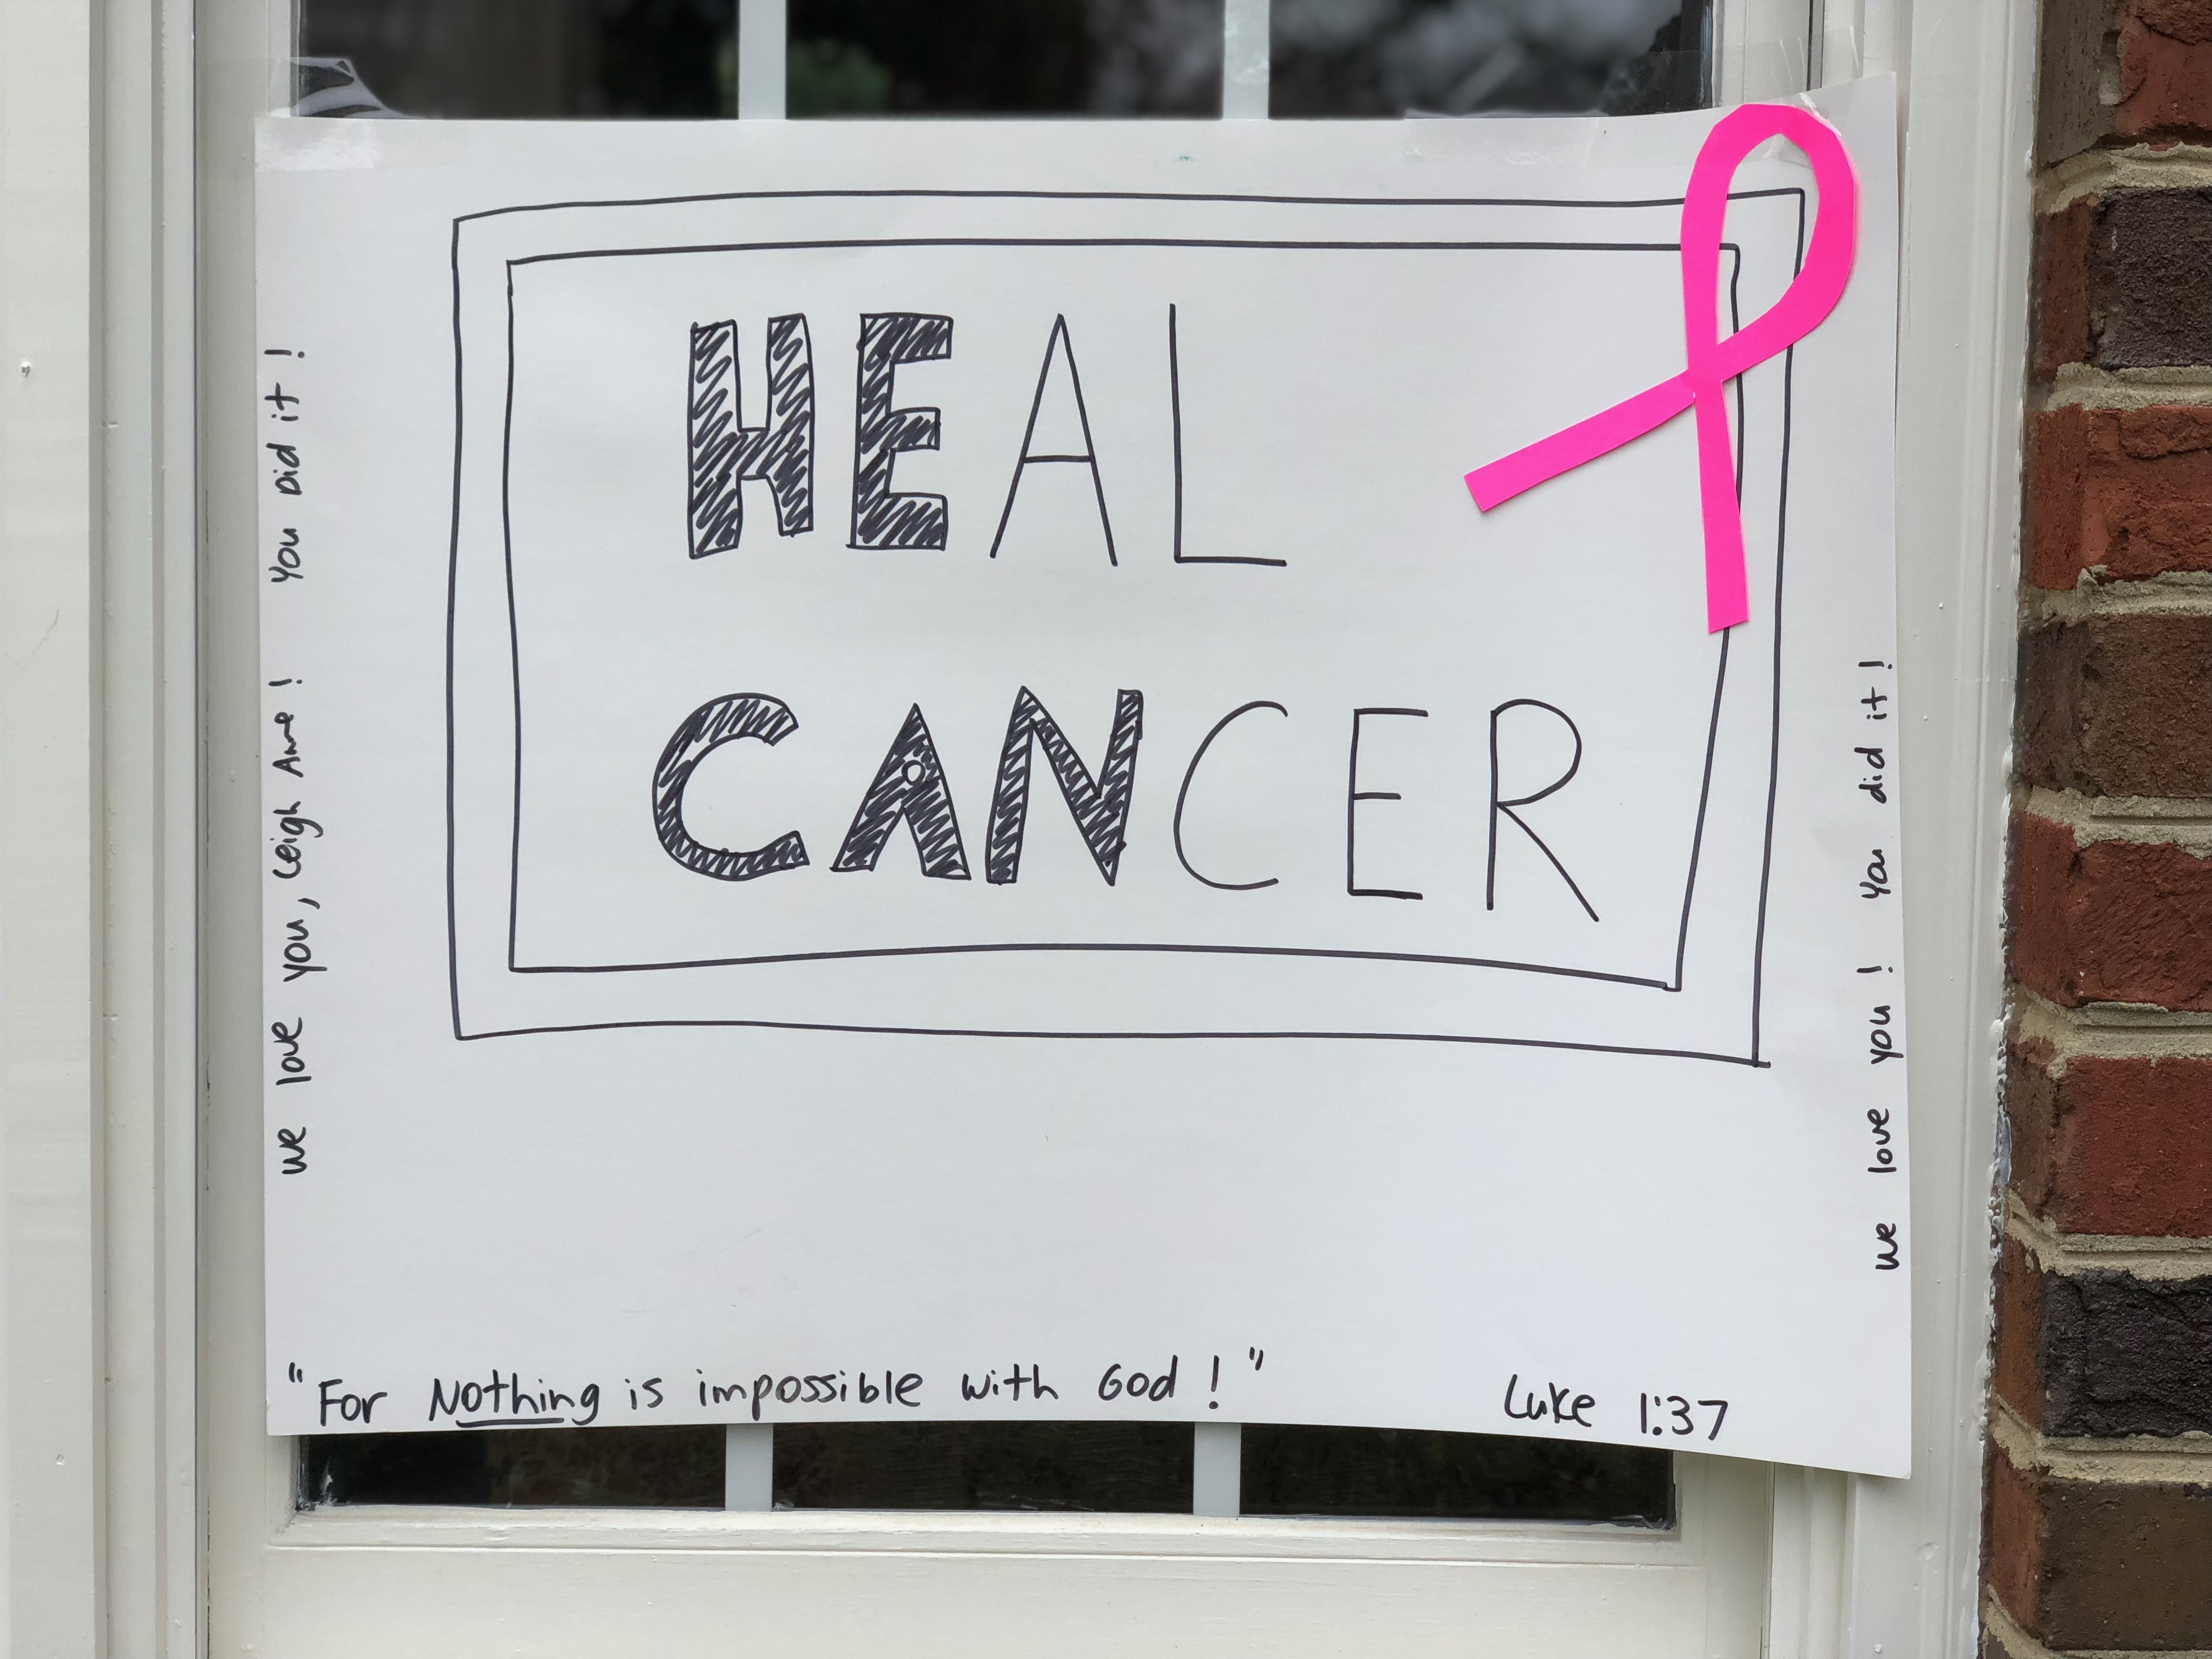 HEAL
CANCER
we love you, Leigh Anne! You Did it!
we love you! You did it!
"For Nothing is impossible with God!" Luke 1:37